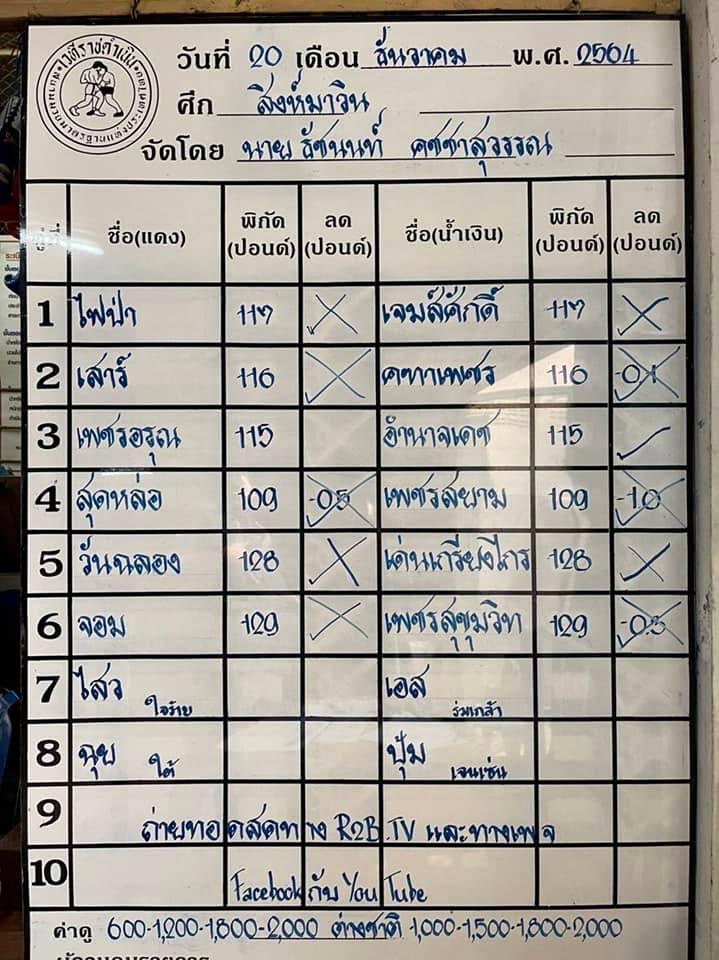 เวทีราชดำเนิน
วันที่ 20 เดือน ธันวาคม พ.ศ. 2564
ศึก สิงห์มาวิน
จัดโดย นาย ธัชนนท์ คชชาสุวรรณ
คู่ที่ ชื่อ(แดง) พิกัด (ปอนด์) ลด (ปอนด์) ชื่อ(น้ำเงิน) พิกัด (ปอนด์) ลด (ปอนด์)
1 ไฟป่า 117 เจมส์ศักดิ์ 117
2 เสาร์ 116 คฑาเพชร 116 -0.1
3 เพชรอรุณ 115 อำนาจเดช 115
4 สุดหล่อ 109 -0.5 เพชรสยาม 109 -1.0
5 วันฉลอง 128 เด่นเกรียงไกร 128
6 จอม 129 เพชรสุขุมวิท 129 -0.5
7 ไสว ใจร้าย เอส ร่มเกล้า
8 ฉุย ใต้ ปุ้ม เจนเซ่น
9 ถ่ายทอดสดทาง R2B.TV และทางเพจ
10 Facebook กับ You Tube
ค่าดู 600-1,200-1,800-2,000 ต่างชาติ 1,000-1,500-1,800-2,000